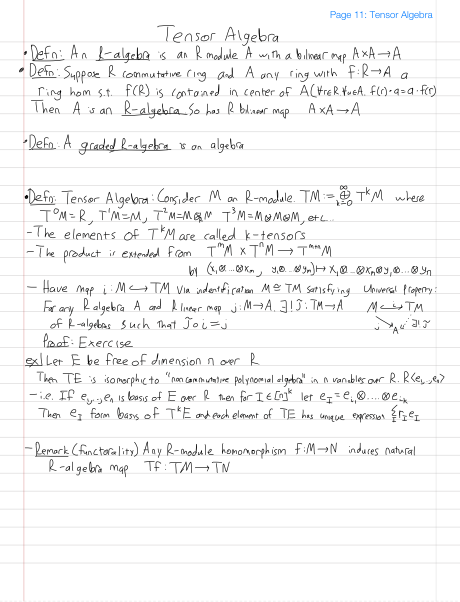 Page 11: Tensor Algebra
Tensor Algebra
• Defn: An R-algebra is an R module A with a bilinear map A×A→A
• Defn: Suppose R commutative ring and A any ring with f:R→A a
ring hom s.t. f(R) is contained in center of A (∀r∈R ∀a∈A, f(r)·a=a·f(r))
Then A is an R-algebra So has R bilinear map A×A→A
• Defn: A graded R-algebra is an algebra
• Defn: Tensor Algebra: Consider M an R-module. TM:=⊕_{k=0}^∞ T^kM where
T⁰M=R, T¹M=M, T²M=M⊗M T³M=M⊗M⊗M, etc...
- The elements of T^kM are called k-tensors
- The product is extended from T^mM × T^nM → T^{m+n}M
by (x₁⊗...⊗x_m, y₁⊗...⊗y_n)↦x₁⊗...⊗x_m⊗y₁⊗...⊗y_n
- Have map i:M↪TM via indentification M≅TM satisfying Universal Property:
For any R algebra A and R linear map j:M→A, ∃! J̄:TM→A M↪TM
of R-algebras such that J̄∘i=j j ↘ A ↙ ∃! J̄
Proof: Exercise
ex| Let E be free of dimension n over R
Then TE is isomorphic to "noncommutative polynomial algebra" in n variables over R. R⟨e₁,..,e_n⟩
- i.e. If e₁,..,e_n is basis of E over R then for I∈[n]^k let e_I=e_{i₁}⊗....⊗e_{i_k}
Then e_I form basis of T^kE and each element of TE has unique expression Σ_I r_I e_I
- Remark (functorality) Any R-module homomorphism f:M→N induces natural
R-algebra map Tf:TM→TN